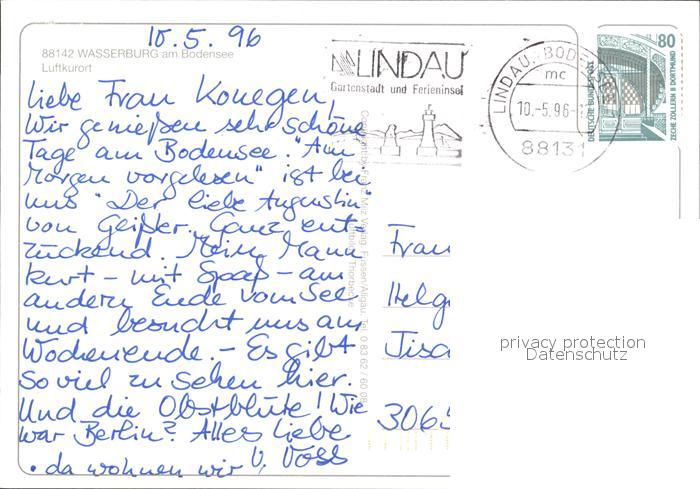 10.5.96
88142 WASSERBURG am Bodensee
Luftkurort
LINDAU
Gartenstadt und Ferieninsel
LINDAU, BODENSEE
mc
10.-5.96-
88131
80
DEUTSCHE BUNDESPOST
ZECHE ZOLLERN II DORTMUND
Liebe Frau Konegen,
Wir genießen sehr schöne
Tage am Bodensee. "Am
Morgen vorgelesen" ist bei
uns "Der liebe Augustin"
von Geißler. Ganz ent-
zückend. Mein Mann
kurt - mit Spaß - am
andern Ende vom See
und besucht uns am
Wochenende. - Es gibt
so viel zu sehen hier.
Und die Obstblüte! Wie
war Berlin? Alles Liebe
• da wohnen wir U. Voss
Frau
Helg
Tisc
3065
privacy protection
Datenschutz